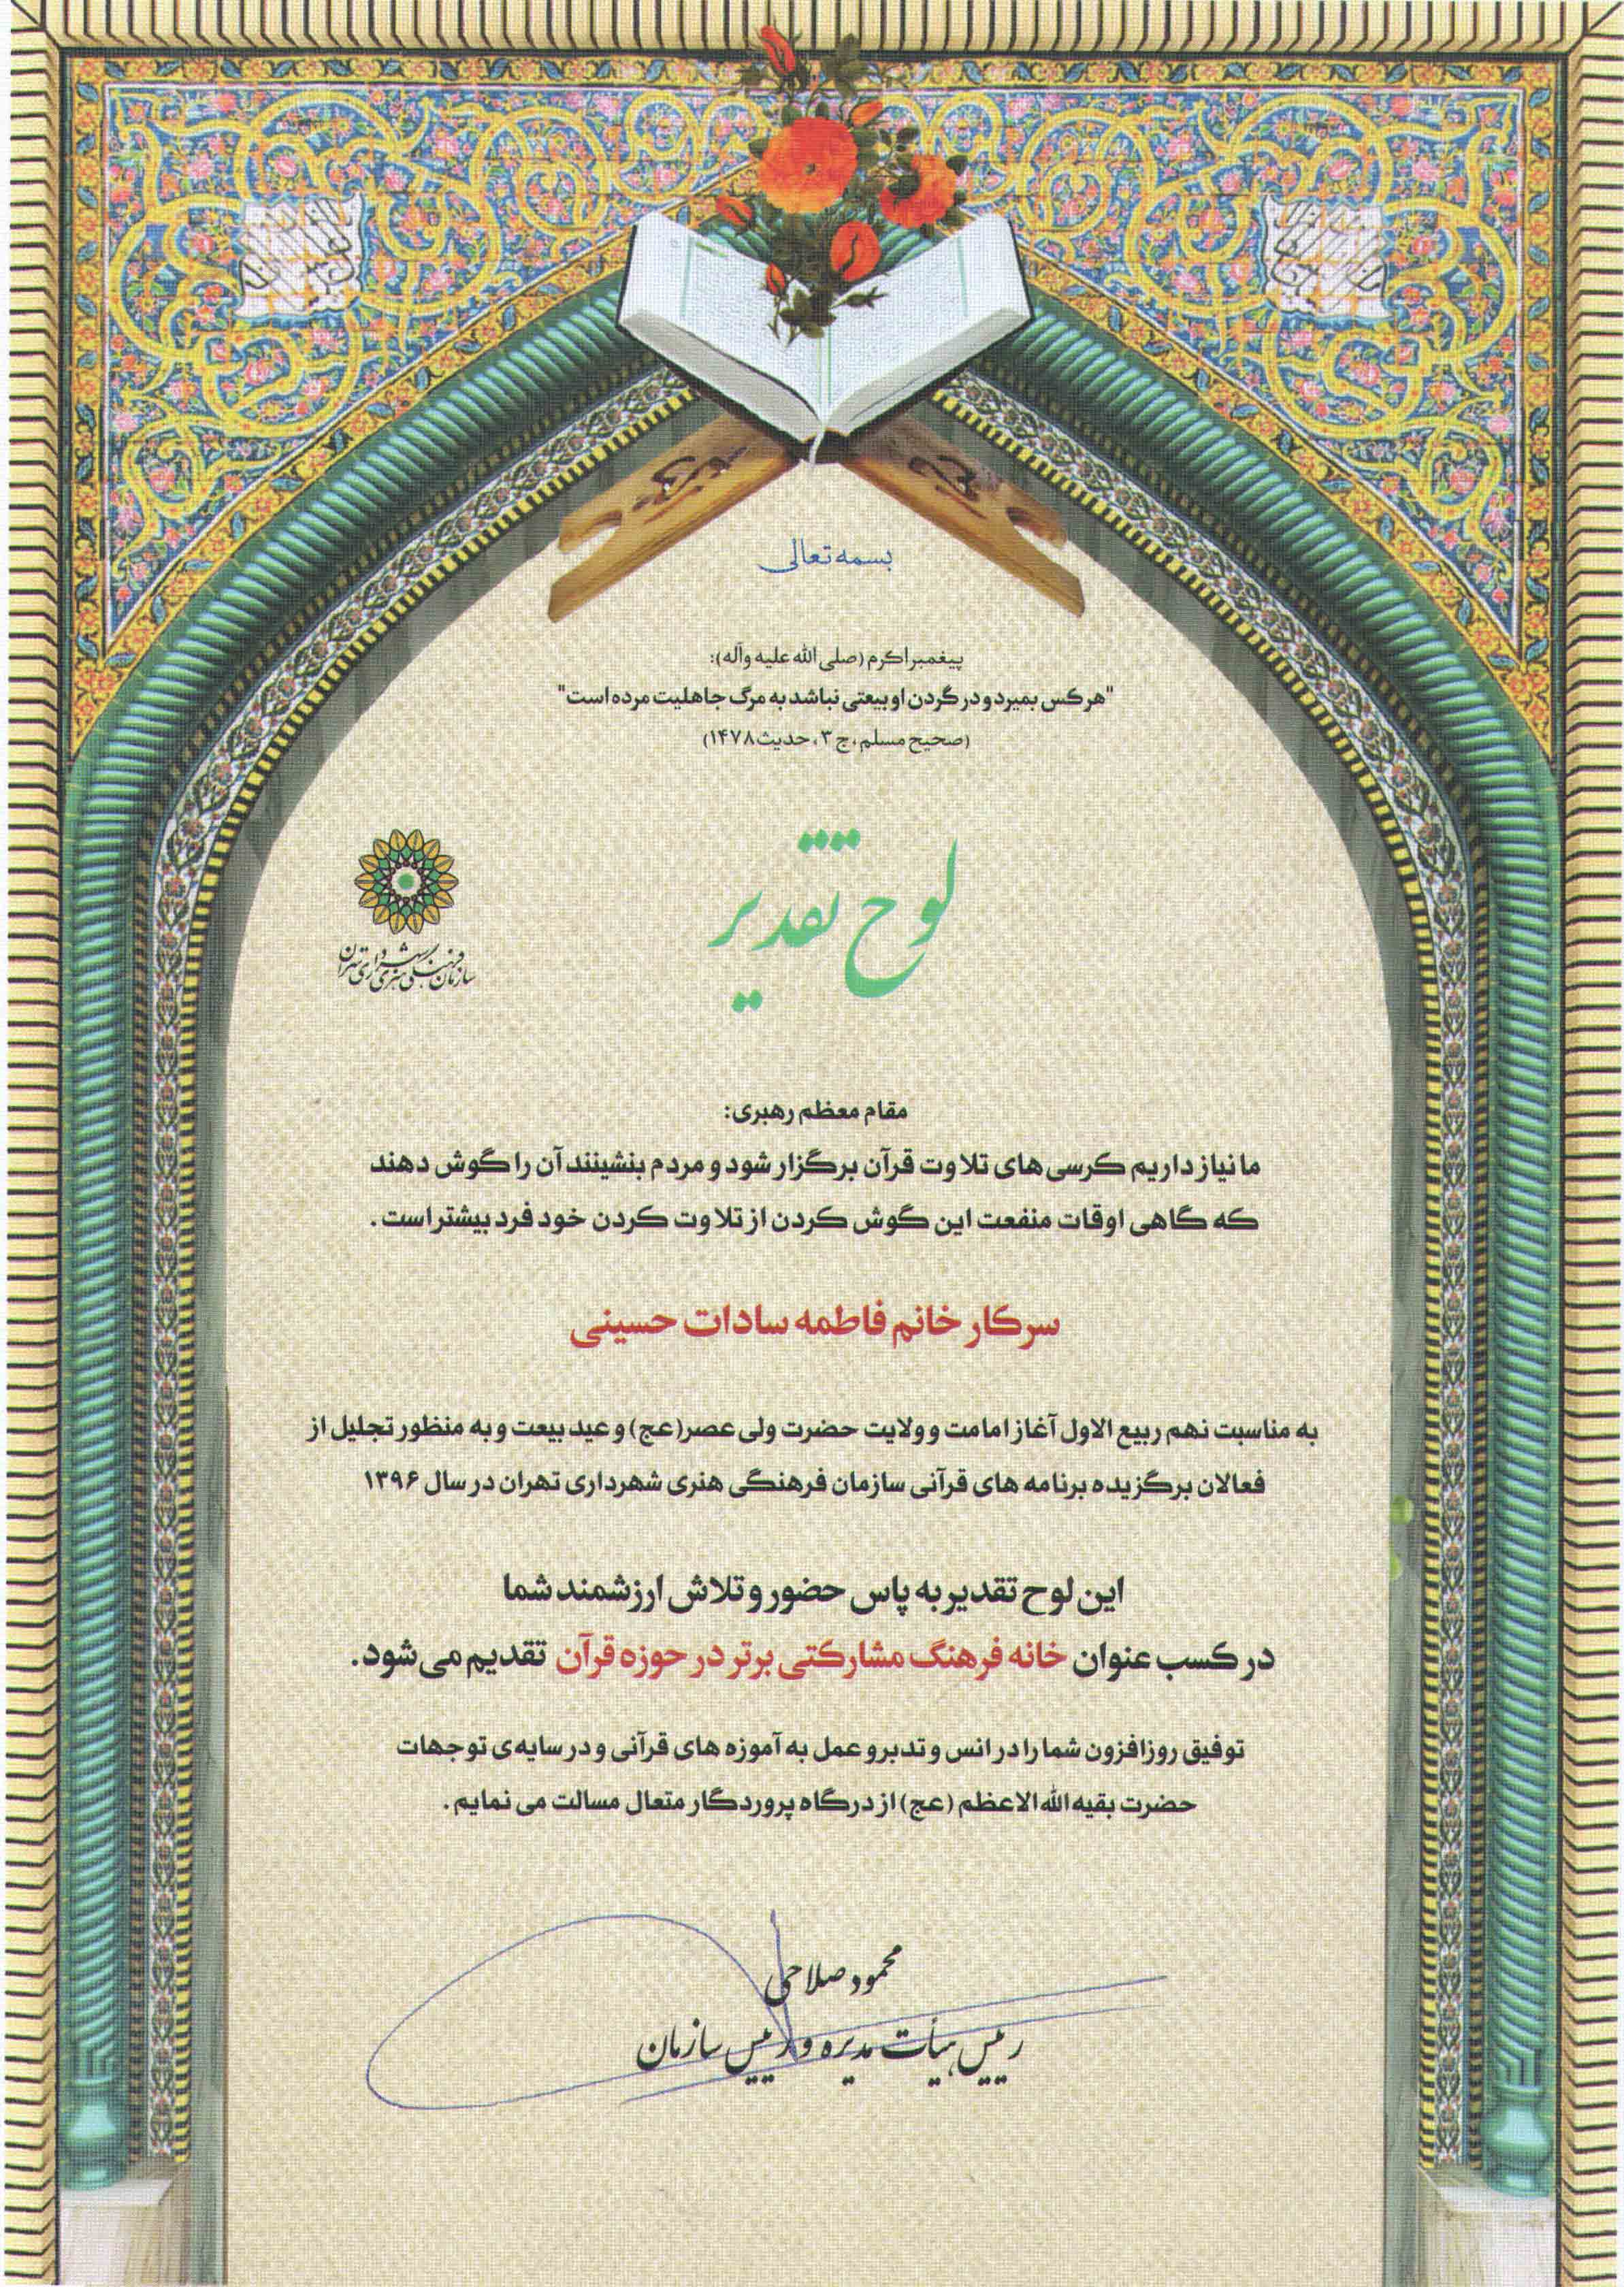 بسمه تعالی
پیغمبر اکرم (صلی الله علیه وآله):
"هر کس بمیرد و در گردن او بیعتی نباشد به مرگ جاهلیت مرده است"
(صحیح مسلم، ج ۳، حدیث ۱۴۷۸)
لوح تقدیر
سازمان فرهنگی هنری شهرداری تهران
مقام معظم رهبری:
ما نیاز داریم کرسی های تلاوت قرآن برگزار شود و مردم بنشینند آن را گوش دهند
که گاهی اوقات منفعت این گوش کردن از تلاوت کردن خود فرد بیشتر است.
سرکار خانم فاطمه سادات حسینی
به مناسبت نهم ربیع الاول آغاز امامت و ولایت حضرت ولی عصر(عج) و عید بیعت و به منظور تجلیل از
فعالان برگزیده برنامه های قرآنی سازمان فرهنگی هنری شهرداری تهران در سال ۱۳۹۶
این لوح تقدیر به پاس حضور و تلاش ارزشمند شما
در کسب عنوان خانه فرهنگ مشارکتی برتر در حوزه قرآن تقدیم می شود.
توفیق روزافزون شما را در انس و تدبر و عمل به آموزه های قرآنی و در سایه ی توجهات
حضرت بقیه الله الاعظم (عج) از درگاه پروردگار متعال مسالت می نمایم.
محمود صلاحی
رییس هیأت مدیره و رییس سازمان